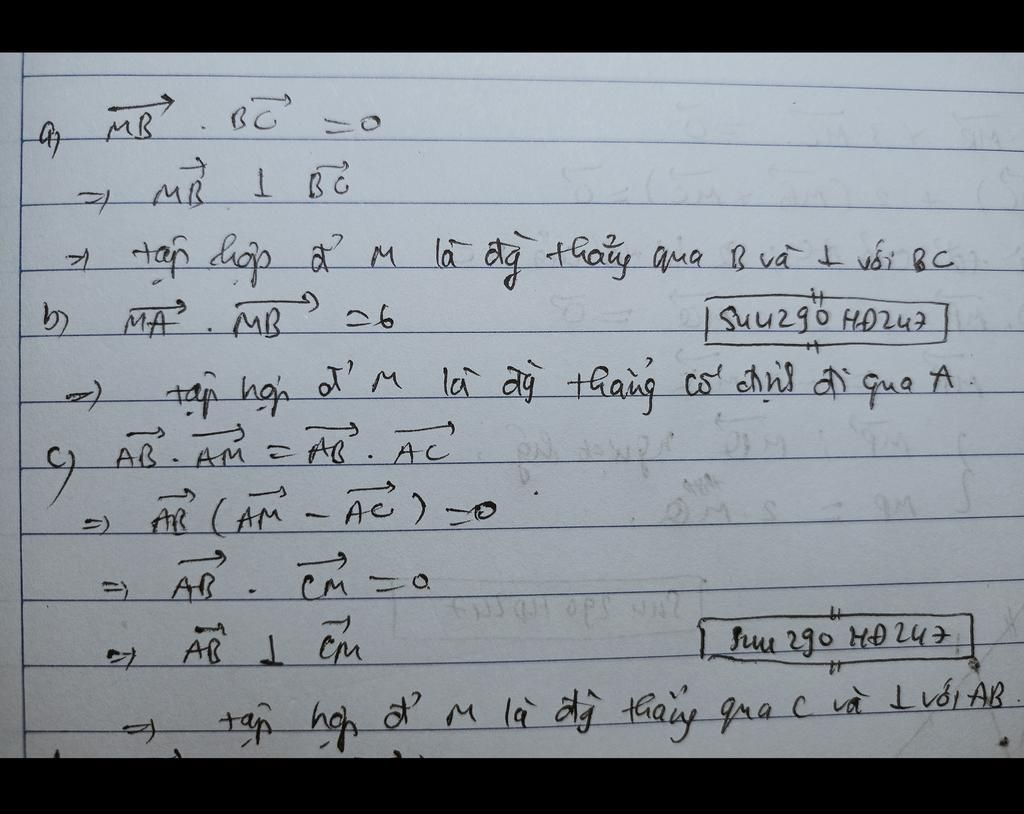 a) MB . BC = 0
=> MB ⊥ BC
=> tập hợp đ' M là đg thẳng qua B và ⊥ với BC
b) MA . MB = 6
Suu290 HĐ247
=> tập hợp đ' M là đg thẳng cố định đi qua A.
c) AB . AM = AB . AC
=> AB (AM - AC) = 0
=> AB . CM = 0
=> AB ⊥ CM
Suu 290 HĐ247
=> tập hợp đ' M là đg thẳng qua C và ⊥ với AB.